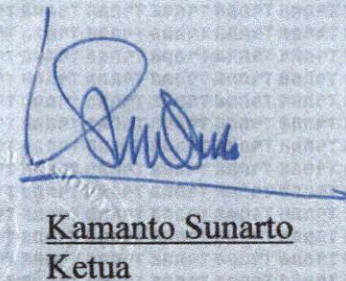 Kamanto Sunarto
Ketua